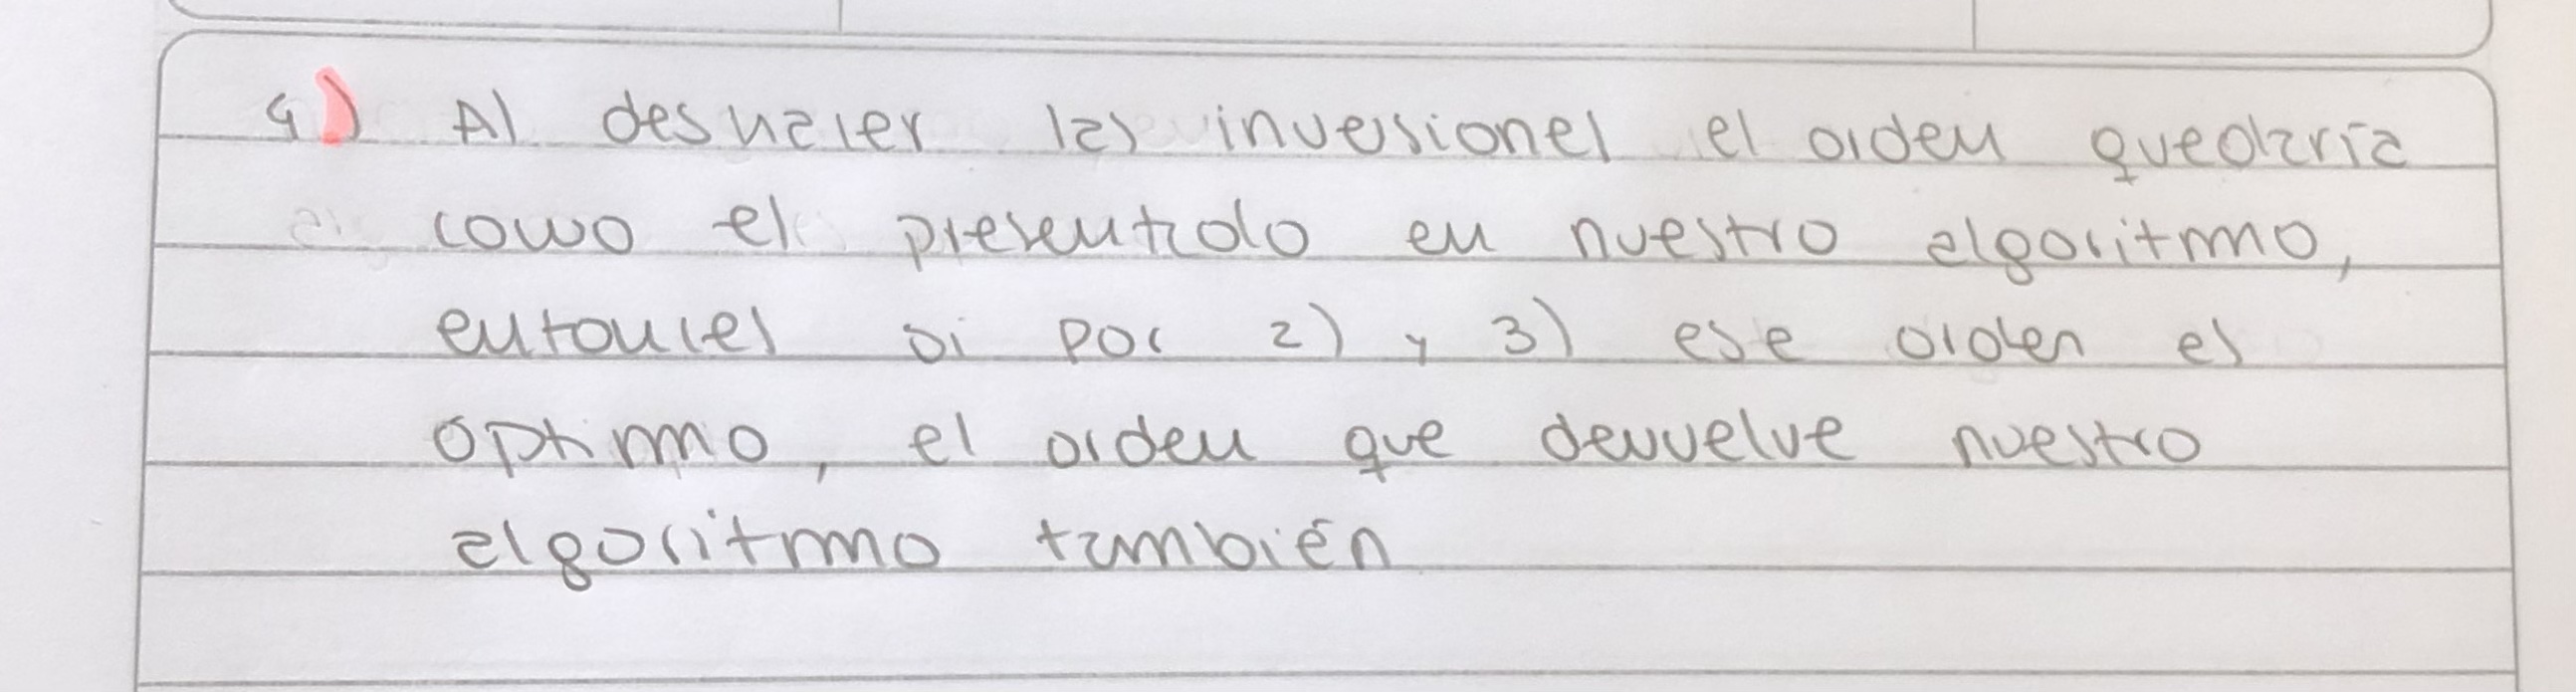 4) Al deshacer las inversiones el orden quedaría
como el presentado en nuestro algoritmo,
entonces si por 2) y 3) ese orden es
óptimo, el orden que devuelve nuestro
algoritmo también